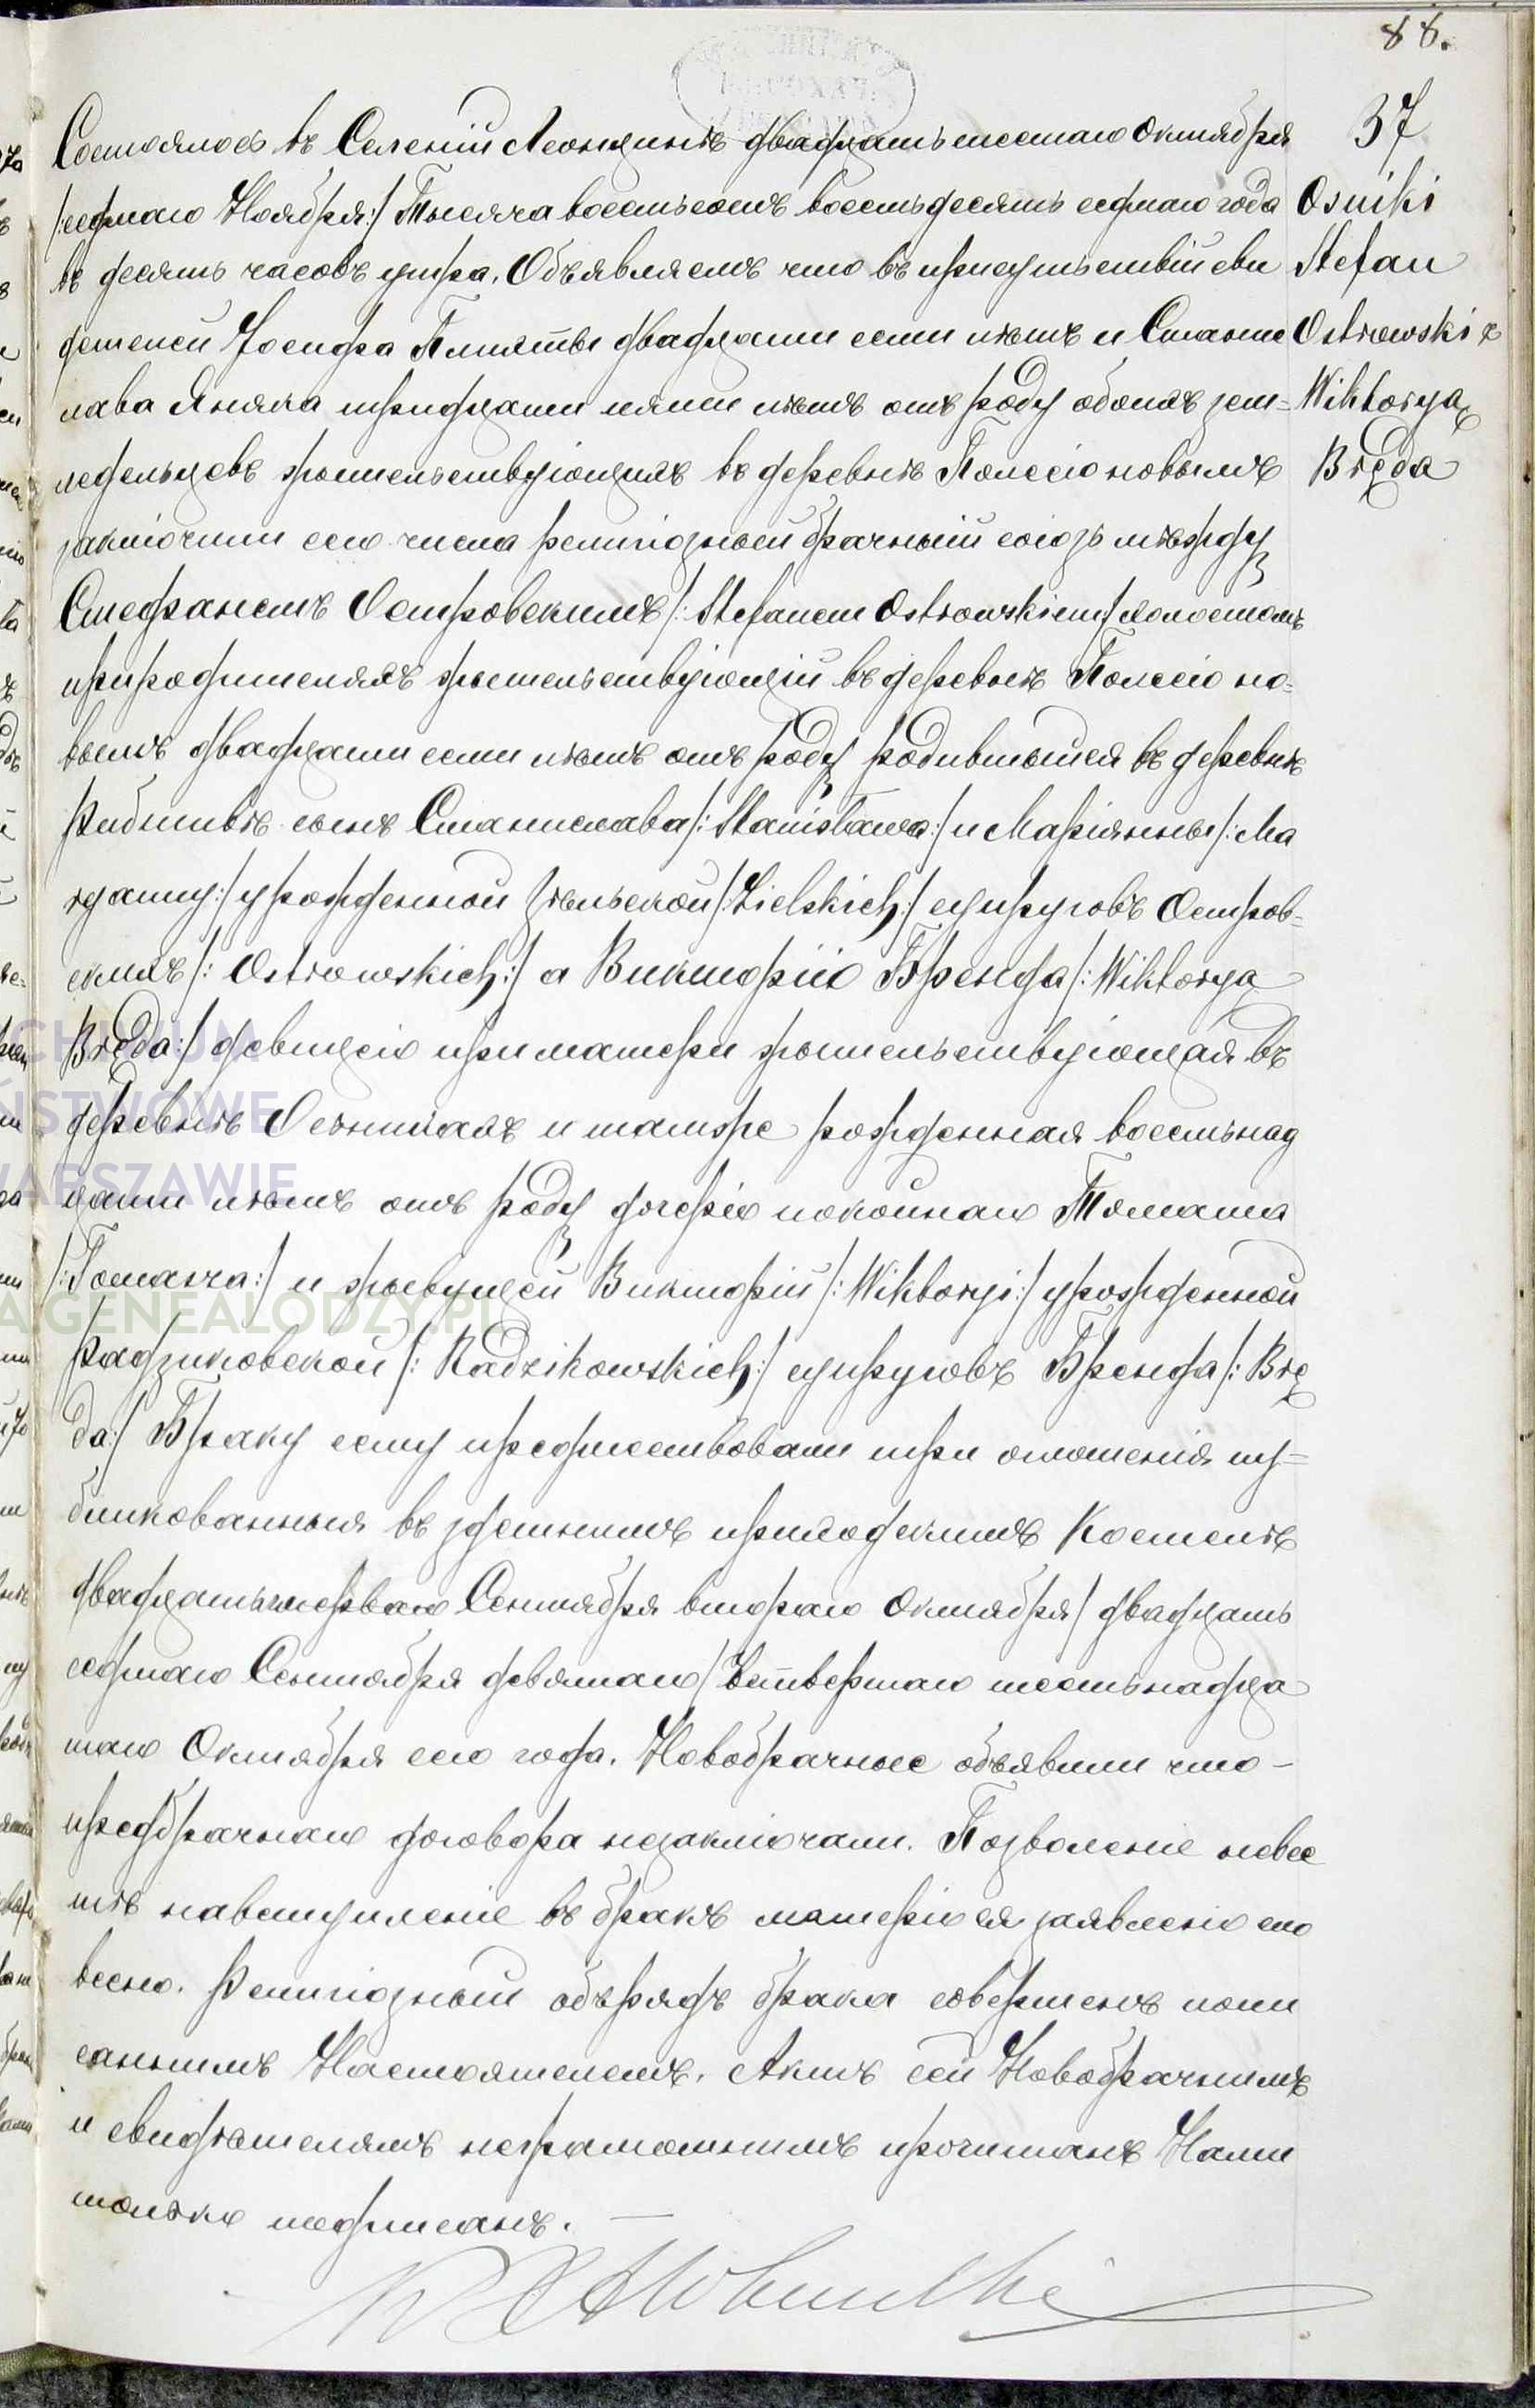 88.
37
Osniki
Stefan
Ostrowski z
Wiktorya
Bręda
Состоялось въ Селеніи Леонцинѣ двадцать шестаго Октября
/:седмаго Ноября:/ Тысяча восемьсотъ восемьдесятъ седмаго года
въ десять часовъ утра. Объявляемъ что въ присутьствіи сви
детелей Іосифа Плихты двадцати семи лѣтъ и Станис
лава Яняка тридцати пяти лѣтъ отъ роду обоихъ зем=
ледельцевъ жительствующихъ въ деревнѣ Полесіе новымъ
заключили сего числа религіозный брачный союзъ мѣжду
Стефанемъ Островскимъ /: Stefanem Ostrowskiem/ холостымъ
прировителяхъ жительствующій въ деревнѣ Полесіе но=
вымъ двадцати семи лѣтъ отъ роду родившыйся въ деревнѣ
Рибитвѣ сынъ Станислава /: Stanisława:/ и Маріянны /: Ma
ryanny:/ урожденной Зѣльской /: Zielskich:/ супруговъ Остров=
скихъ /: Ostrowskich:/ а Викторіею Бренда /: Wiktorya
Bręda:/ девицею при матери жительствующая въ
деревнѣ Осьникахъ и тамже рожденная восемьнад
цати лѣтъ отъ роду дочерію покойнаго Томаша
/:Tomasza:/ и жывущей Викторіи /: Wiktoryi:/ урожденной
Радзиковской /: Radzikowskich:/ супруговъ Бренда /: Brę
da:/ Браку сему предшествовали три оглошенія пу=
бликованныя въ здешнимъ приходскимъ Костелѣ
двадцатьперваго Сентября втораго Октября / двадцать
седмаго Сентября девятаго / Четвертаго шестьнадца
таго Октября сего года. Новобрачные объявили что -
предбрачнаго договора незаключали. Позволеніе невес
тѣ навступленіе въ бракъ матерію ея заявлено сло
весно. Религіозный обърядъ брака совершенъ ниже
саннымъ Настоятелемъ. Актъ сей Новобрачнымъ
и свидѣтелямъ неграмотнымъ прочитанъ Нами
только подписанъ. —